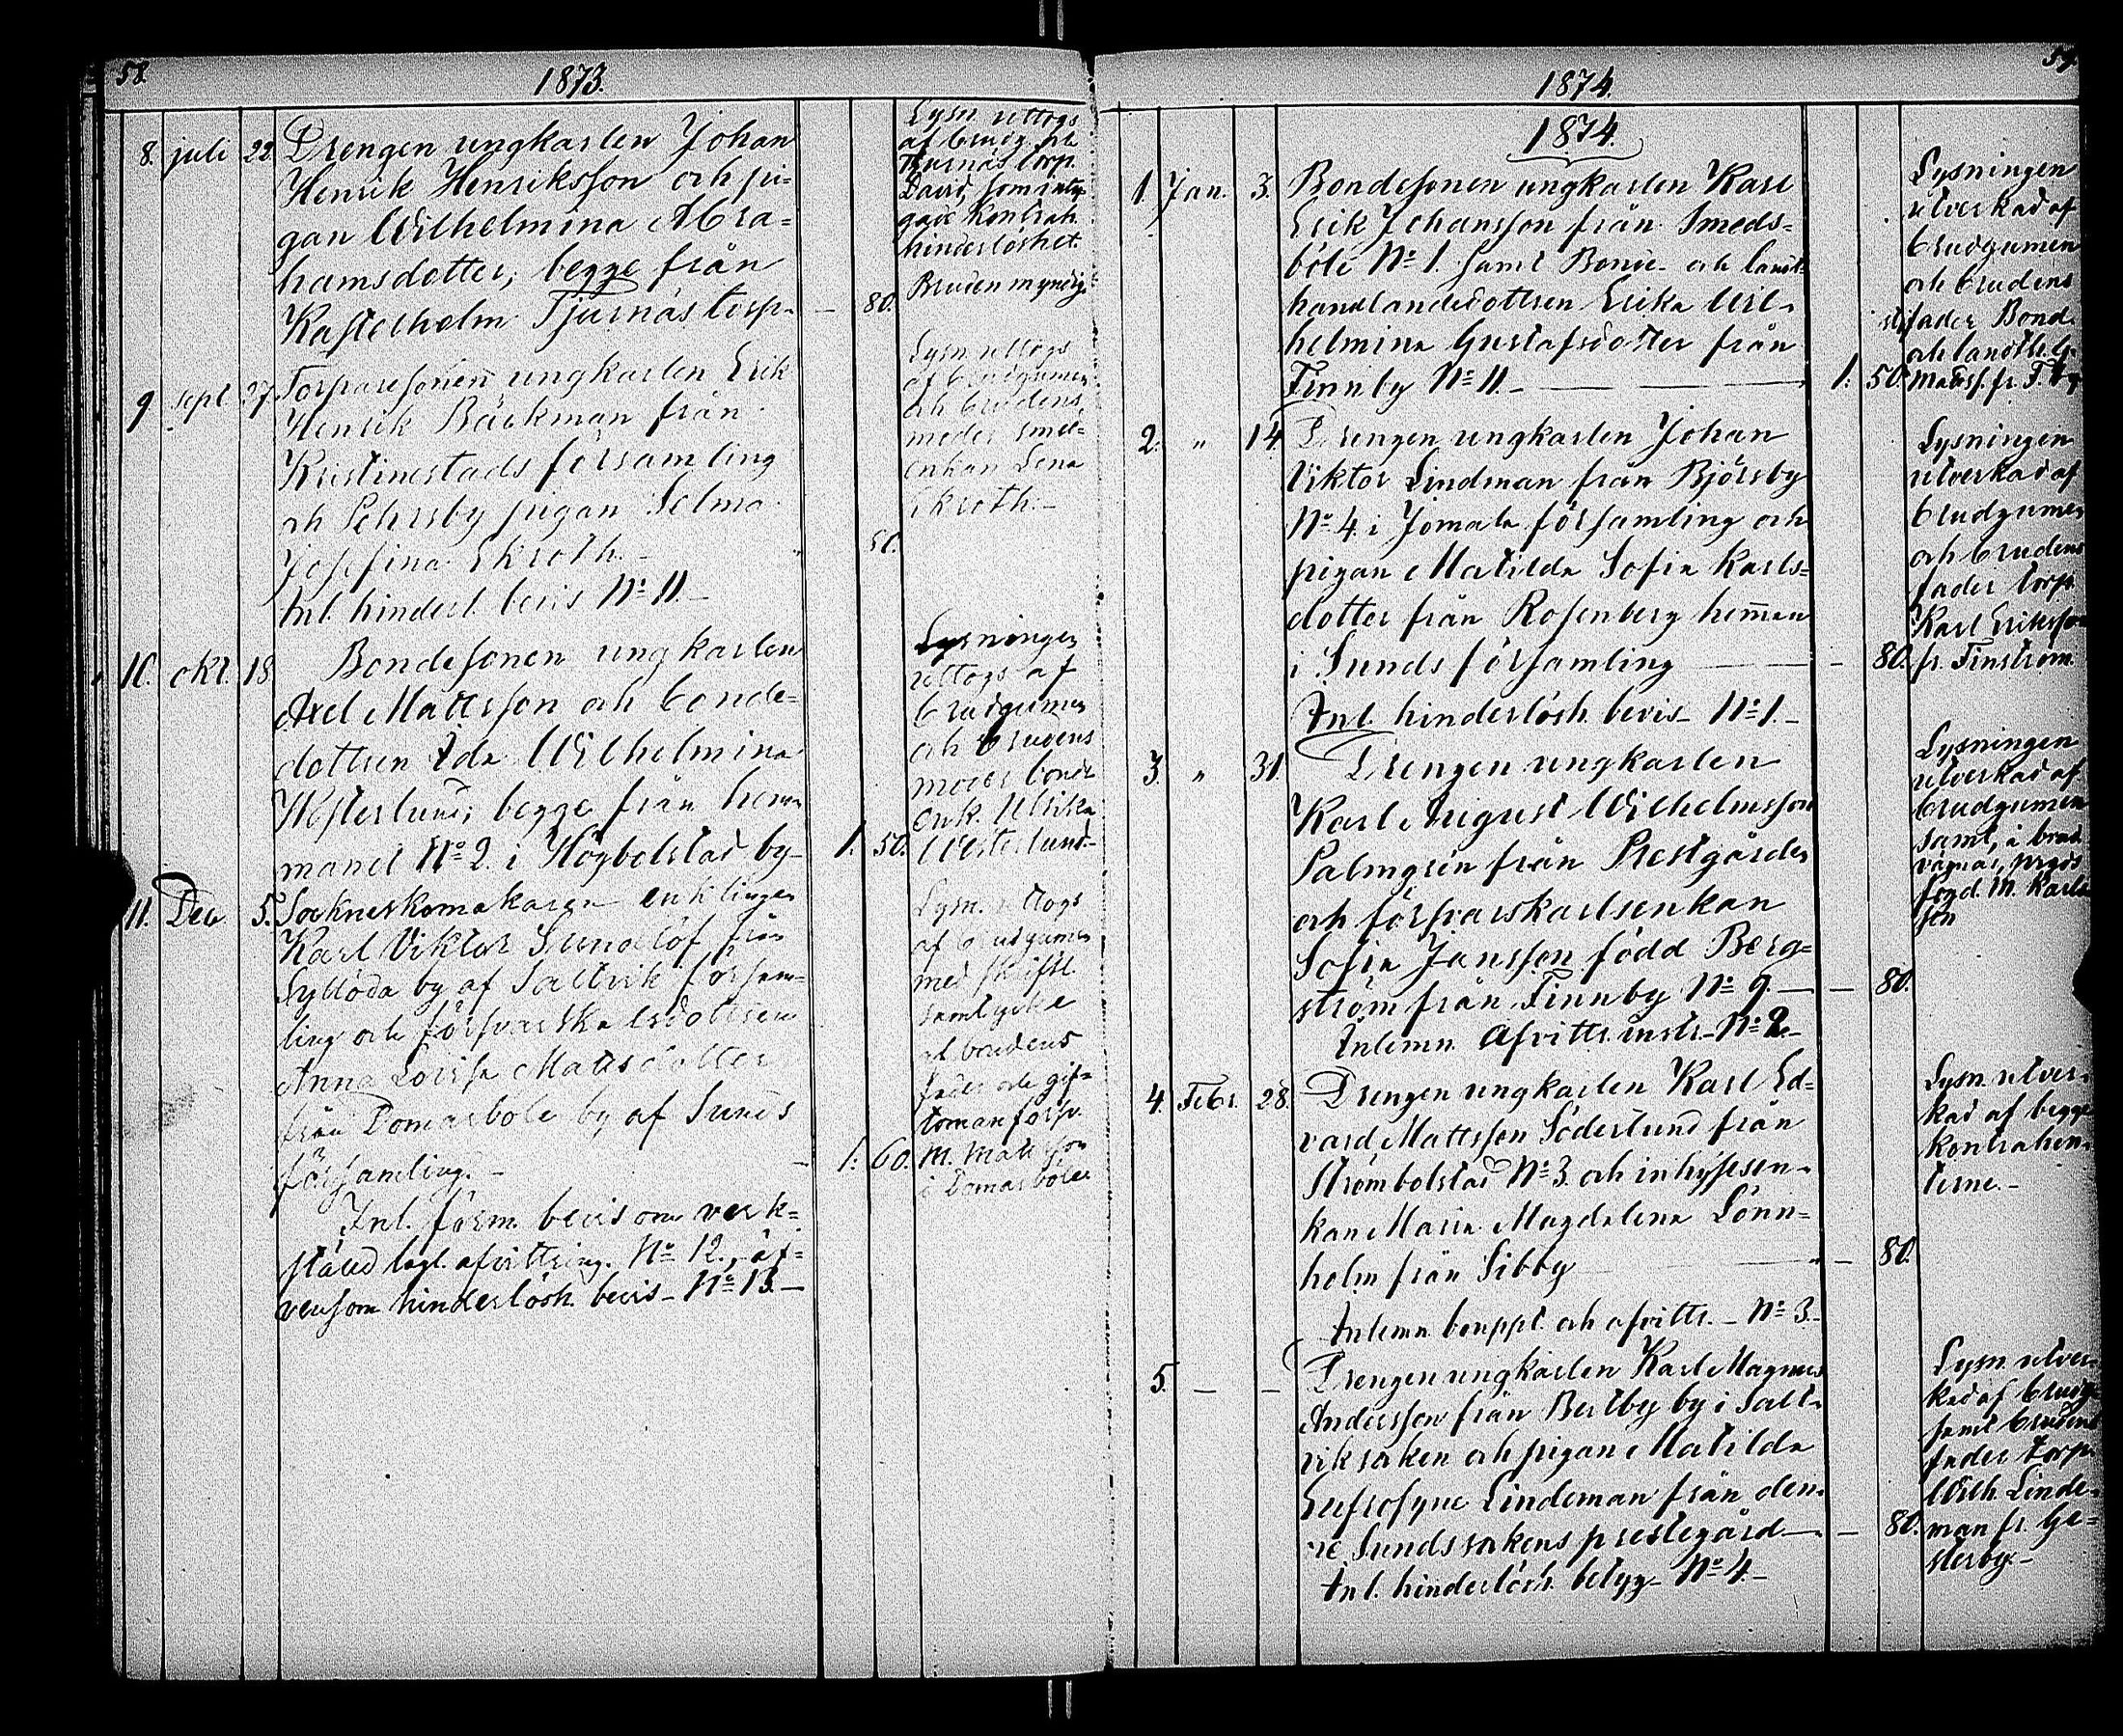 58.
1873.
8. juli 22. Drengen ungkarlen Johan
Henrik Henriksson och pi-
gan Wilhelmina Abra-
hamsdotter, begge från
Kastelholm Tjurnäs torp. — 80.
Lysn. uttogs
af brudg. och
Tjurnäs torp.
David, som inty-
gade Kontrah.
hinderlöshet.
Bruden myndig.
9. sept. 27. Torparesonen ungkarlen Erik
Henrik Bäckman från
Kristinestads församling
och Persby pigan Selma
Josefina Ekroth. — 80.
Inl. hinderl. bevis No 11. —
Lysn. uttogs
af brudgumen
och brudens
moder smed-
enkan Lena
Ekroth. —
10. okt. 18. Bondesonen ungkarlen
Axel Mattsson och bonde-
dottren Ida Wilhelmina
Westerlund, begge från hem-
manet No 2. i Högbolstad by— 1. 50.
Lysningen
uttogs af
brudgumen
och brudens
moder bonde
enk. Ulrika
Westerlund. —
11. Dec. 5. Sockneskomakaren enklingen
Karl Viktor Sundlöf från
Syllöda by af Saltvik försam-
ling och försvarskarlsdottren
Anna Lovisa Mattsdotter
från Domarböle by af Sunds
församling. — — 1. 60.
Inl. förm. bevis om verk-
ställd lagl. afvittring. No 12., äf-
vensom hinderlösh. bevis — No 13. —
Lysn. uttogs
af brudgumen
med skriftl.
samtycke
af brudens
fader och gif-
toman försv.
M. Mattsson
i Domarböle.
59.
1874.
1874.
1. Jan. 3. Bondesonen ungkarlen Karl
Erik Johansson från Smeds-
böle No 1. samt Bonde- och landt-
handlandedottren Erika Wil-
helmina Gustafsdotter från
Finnby No 11. — 1. 50.
Lysningen
utverkad af
brudgumen
och brudens
fader Bond.
och landth. G.
Mattss. fr. F. by
2. " 14. Drengen ungkarlen Johan
Viktor Lindman från Björsby
No 4. i Jomala församling och
pigan Matilda Sofia Karls-
dotter från Rosenberg hemman
i Sunds församling — — 80.
Inl. hinderlösh. bevis — No 1. —
Lysningen
utverkad af
brudgumen
och brudens
fader torp.
Karl Eriksson
fr. Finström.
3. " 31. Drengen ungkarlen
Karl August Wilhelmsson
Palmgrén från Prestgården
och försvarskarlsenkan
Sofia Jansson född Berg-
ström från Finnby No 9. — — 80.
Inlemn. Afvittr. instr. — No 2. —
Lysningen
utverkad af
brudgumen
samt, å brud.
vägnar,
fogd. M. Karls-
son
4. Febr. 28. Drengen ungkarlen Karl Ed-
vard Mattsson Söderlund från
Strömbolstad No 3. och inhysesen-
kan Maria Magdalena Lönn-
holm från Sibby — — 80.
Inlemn. bouppt. och afvittr. — No 3. —
Lysn. utver-
kad af begge
kontrahen-
terne. —
5. — — Drengen ungkarlen Karl Magnus
Andersson från Bertby by i Salt-
vik socken och pigan Matilda
Eufrosyne Lindeman från den-
ne Sunds sockens prestegård — — 80.
Inl. hinderlösh. betyg — No 4. —
Lysn. utver-
kad af brudg.
samt brudens
fader torp.
Wilh. Linde-
man fr. Ge-
sterby. —